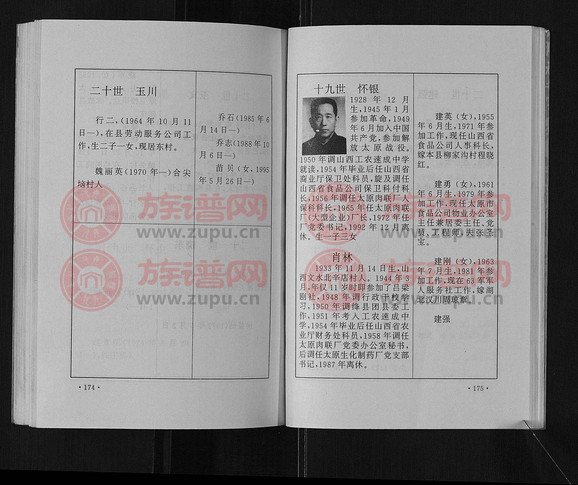 二十世 玉川
行二,(1964年10月11
日—),在县劳动服务公司工
作,生二子一女,现居东村。
魏丽英(1970年—)合尖
垴村人
乔石(1985年6
月14日—)
乔志(1988年10
月6日—)
苗贝(女,1995
年5月26日—)
·174·
十九世 怀银
1928年12月
生,1945年1月
参加革命,1949
年6月加入中国
共产党,参加解
放太原战役。
1950年调山西工农速成中学
就读,1954年毕业后任山西省
商业厅保卫处科员,旋及调任
山西省食品公司保卫科付科
长,1956年调太原肉联厂人
保科科长,1965年任太原肉联厂
(大型企业)厂长,1972年任
厂党委书记,1992年12月离
休。生一子三女
肖林
1933年11月14日生,山
西文水北辛店村人。1944年3
月,年仅11岁时即参加了吕梁
剧社,1948年调行政干校学
习,1950年调绛县团县委工
作,1951年考入工农速成中
学,1954年毕业后任山西省农
业厅财务处科员,1958年调任
太原肉联厂党委办公室秘书,
后调任太原生化制药厂党支部
书记,1987年离休。
建英(女),1955
年6月生,1971年参
加工作,现任山西省
食品公司人事科长,
嫁本县柳家沟村程晓
红。
建勇(女),1961
年6月生,1979年参
加工作,现任太原市
食品公司物业办公室
主任兼居委主任、党
员、工程师,夫张冬
宝。
建刚(女),1963
年7月生,1981年参
加工作,现在63军军
人服务社工作,嫁湖
北汉川周琼辉。
建强
·175·
族谱网
www.zupu.cn
族谱网
www.zupu.cn
族谱网
www.zupu.cn
族谱网
www.zupu.cn